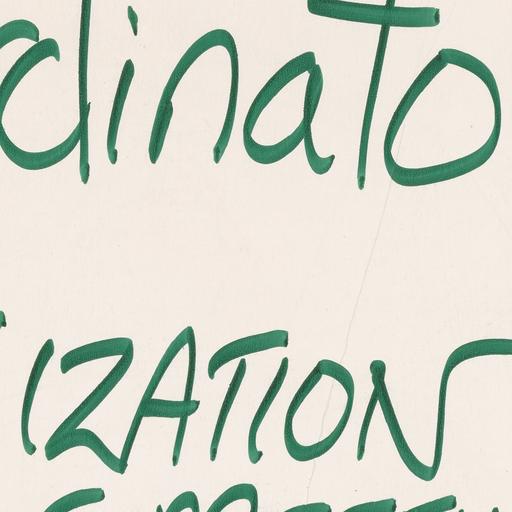 dinato
IZATION